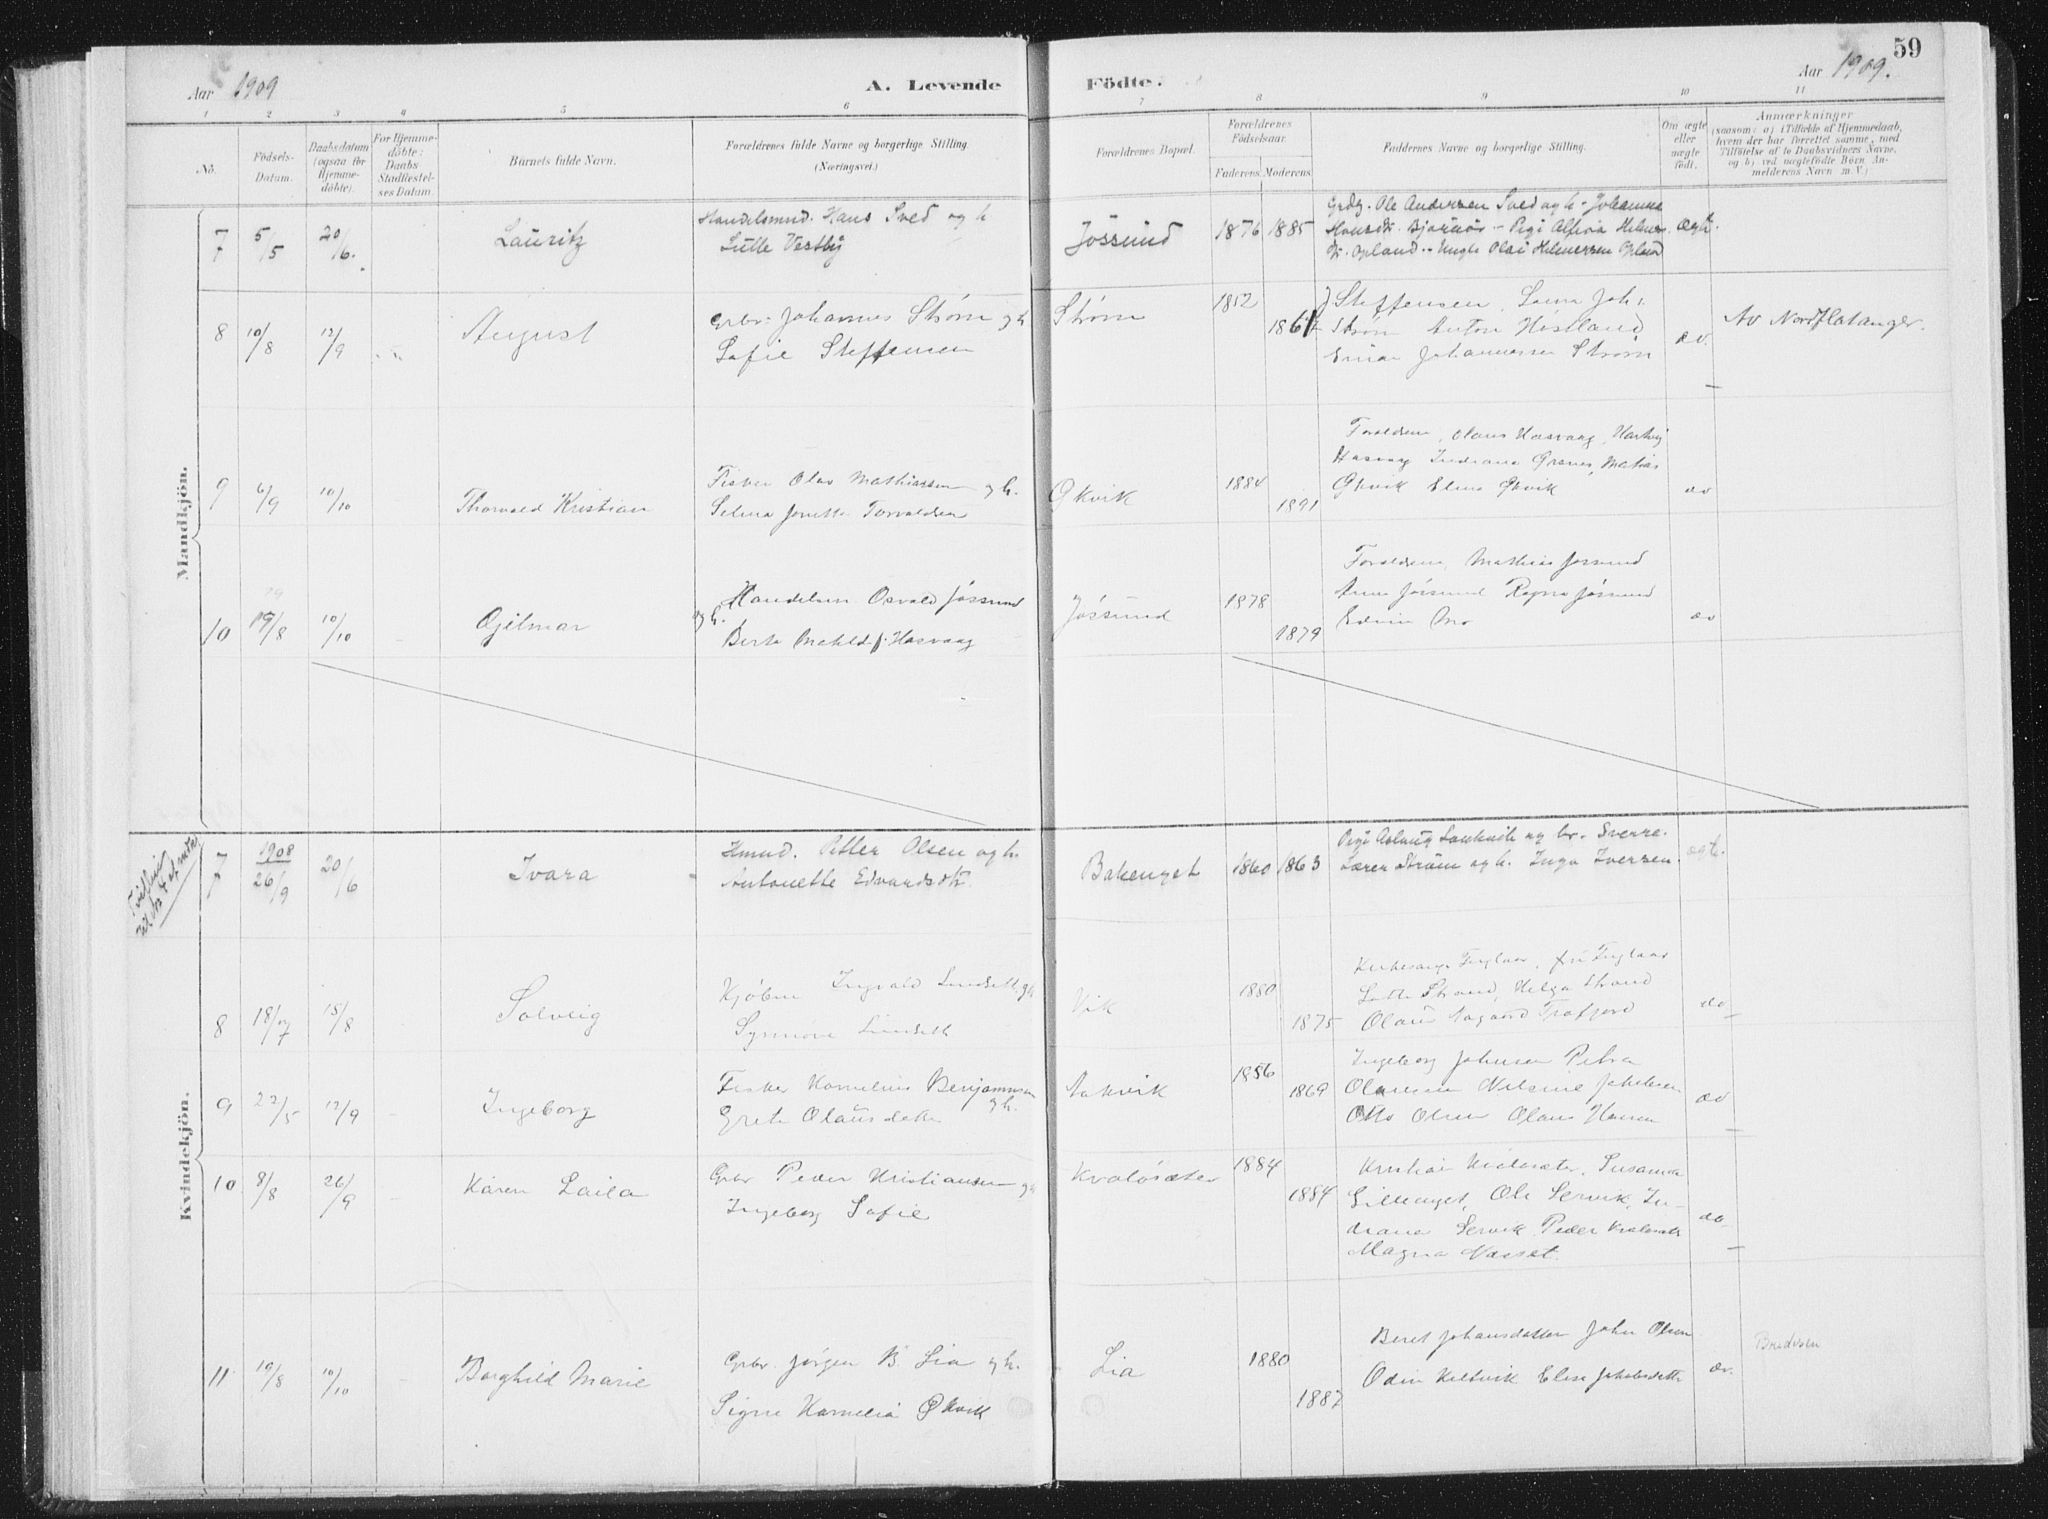 59
Aar 1909
A. Levende
Födte.
Aar 1909.
1 2 3 4 5 6 7 8 9 10 11
No.
Födsels-
Datum.
Daabsdatum
(ogsaa for
Hjemme-
döbte).
For Hjemme-
döbte:
Daabs
Stadfestel-
ses Datum.
Barnets fulde Navn.
Forældrenes fulde Navne og borgerlige Stilling.
(Næringsvei.)
Forældrenes Bopæl.
Forældrenes
Födselsaar.
Faderens Moderens
Faddernes Navne og borgerlige Stilling.
Om ægte
eller
uægte
födt.
Anmærkninger
(saasom: a) i Tilfælde af Hjemmedaab,
hvem der har forrettet samme, med
Tilföielse af to Daabsvidners Navne,
og b) ved uægtefödte Börn An-
melderens Navn m. V.)
Mandkjön.
7 5/5 20/6. Lauritz
Handelsmnd. Hans Sved og h
Lulle Vestby
Jøssund 1876 1885
Grdbr. Ole Andersen Sved og h - Johanna
Hansdtr. Bjørnør - Pigi Alfica Helmers
dtr. Opland - Ungk. Olai Helmersen Opland
Ægte.
8 10/8 12/9 August
Grbr. Johannes Strøm og h
Sofie Steffensen
Strøm 1852 1861
J. Steffensen, Laura Joh.
Strøm Anton Hestland
Einar Johannessen Strøm
do.
Av Nordflatanger.
9 6/9 10/10 Thorvald Kristian
Fisker Olav Mathiassen og h.
Selma Jonette Torvaldsen
Økvik 1884 1891
Foreldrene, Olaus Hasvaag, Hartvig
Hasvaag Indiana Grønes, Matias
Økvik Elma Økvik
do
10 19/8 10/10 Ojelmar
Handelsm. Osvald Jøssund
og h. Berta Makld f. Hasvaag
Jøssund 1878 1879
Foreldrene, Mathias Jøssund
Anna Jøssund Ragna Jøssund
Edvin Mo
do
Kvindekjön.
7 1908 26/9 20/6 Ivara
Hmnd. Petter Olsen og h.
Antonette Edvardsdtr.
Bakenget 1860 1863
Pigi Aslaug Lauknik og br. Sverre.
Lærer Strøm og h. Inga Iversen
ægte.
8 18/7 15/8 Solveig
Kjøbm Ingvald Lindseth. og h
Synnøve Lindseth
Vik 1880 1875
Kirkesanger Fuglaar, fru Fuglaar
Lotte Strand, Helga Strand
Olaus Aagaard Trafjord
do
9 22/5 12/9 Ingeborg
Fisker Kornelius Benjaminsen
og h.
Grete Olausdatter
Aakvik 1856 1869
Ingeborg Johnsen Petra
Olaussen Nilsine Jakobsen
Otto Olsen Olaus Hansen
do
10 8/8 26/9 Karen Laila
Grbr Peder Kristiansen og h
Ingeborg Sofie
Kvaløsæter 1884 1884
Kristian Kvaløsæter, Susanna
Lillenget, Ole Servik, In-
driana Servik Peder Kvaløsæter
Magna Næsset.
do
11 19/8 10/10 Borghild Marie
Grbr. Jørgen B. Lia og h.
Signe Kornelia Økvik
Lia 1880 1887
Beret Johansdatter John Olsen
Odin Keltvik Elise Jakobsdatter
do.
Bredesen